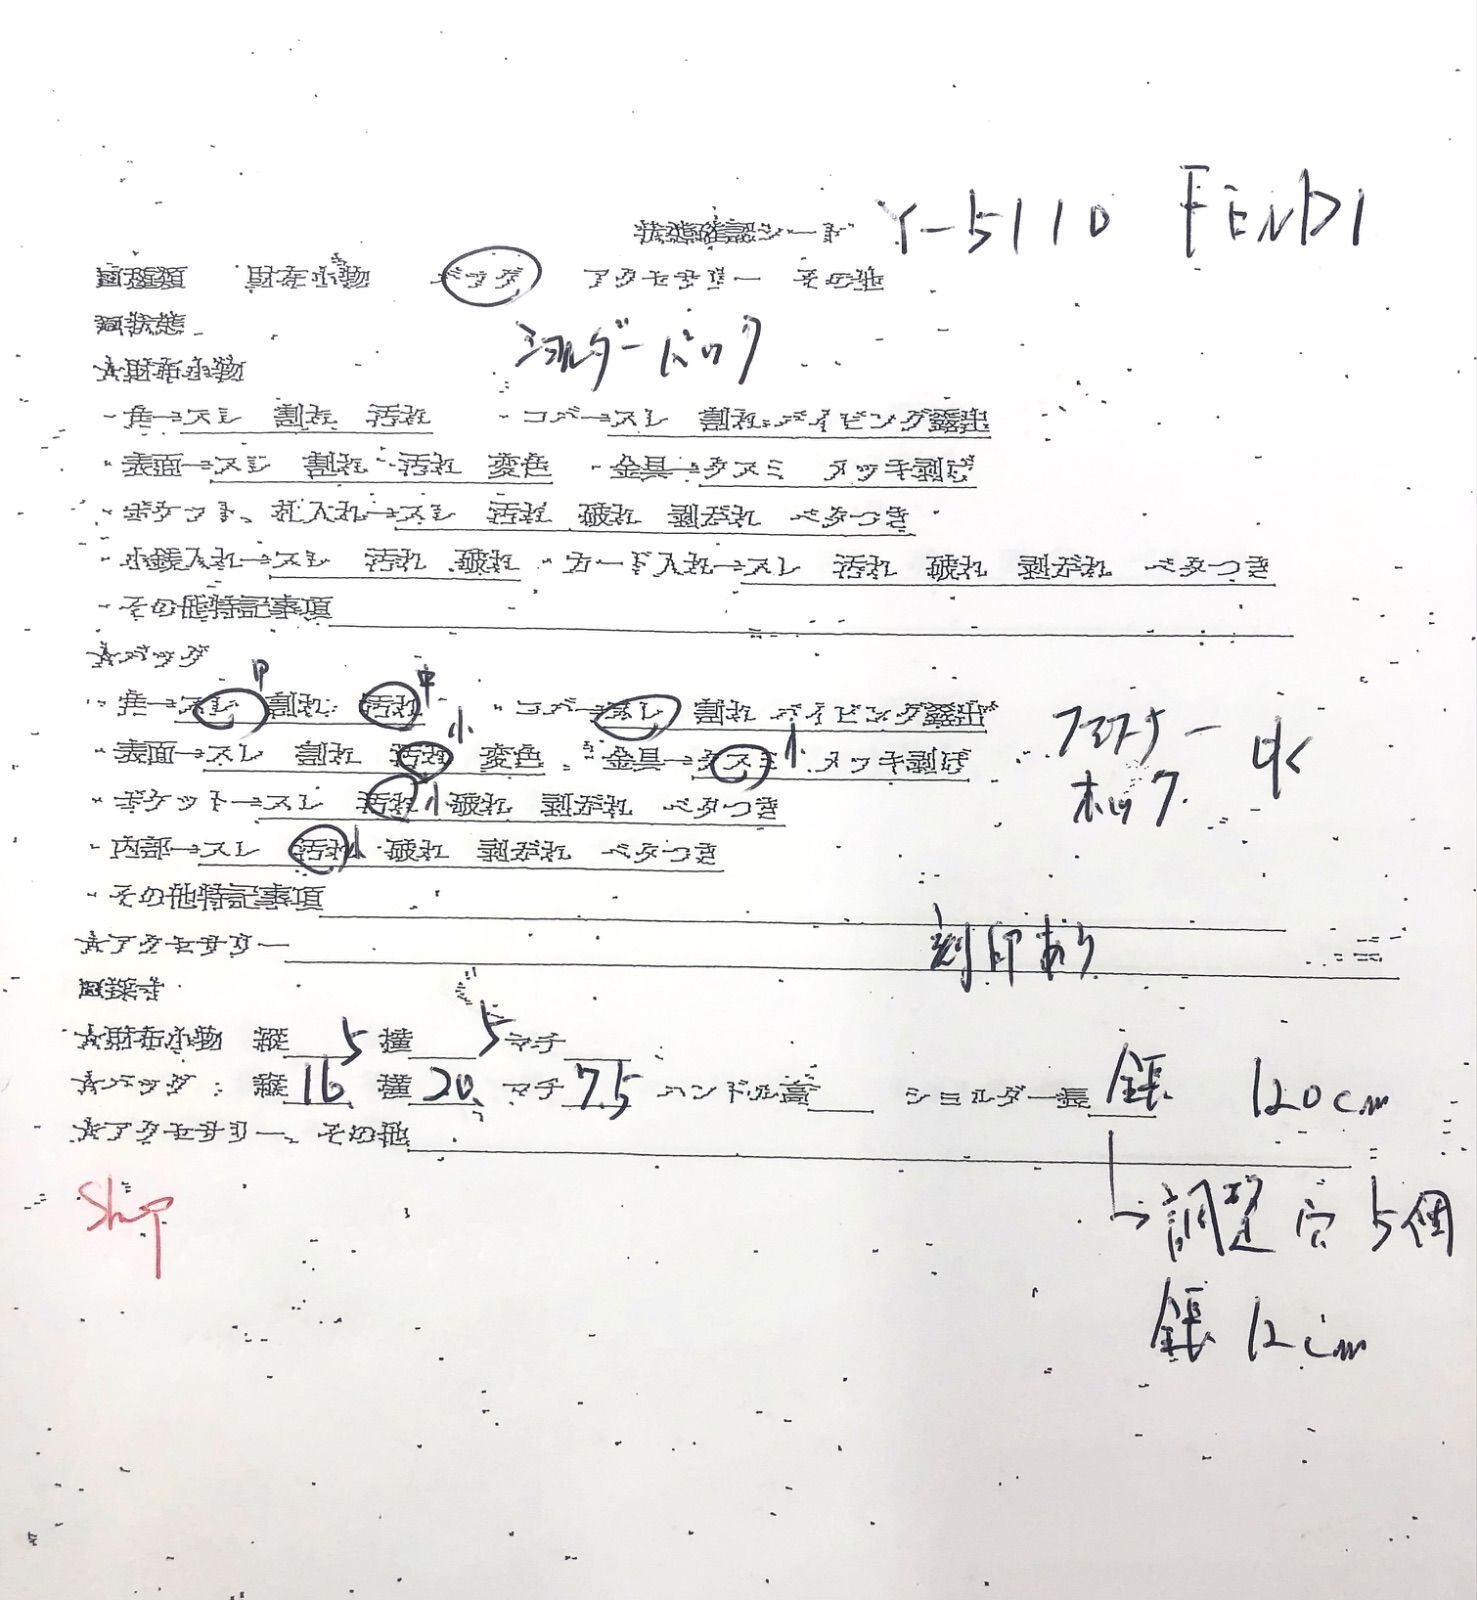 状態確認シート Y-5110 FENDI
種類 財布小物 バッグ アクセサリー その他
状態
ショルダーバック
☆財布小物
・角→スレ 割れ 汚れ ・コバ→スレ 割れ パイピング露出
・表面→スレ 割れ 汚れ 変色 ・金具→クスミ メッキ剥げ
・ポケット、札入れ→スレ 汚れ 破れ 剥がれ ベタつき
・小銭入れ→スレ 汚れ 破れ ・カード入れ→スレ 汚れ 破れ 剥がれ ベタつき
・その他特記事項
☆バッグ
・角→スレ 中 割れ 汚れ 中 ・コバ→スレ 割れ パイピング露出
・表面→スレ 割れ 汚れ 小 変色 ・金具→クスミ 小 メッキ剥げ
ファスナー
ホック
・ポケット→スレ 汚れ 小 破れ 剥がれ ベタつき
・内部→スレ 汚れ 小 破れ 剥がれ ベタつき
・その他特記事項
刻印あり
☆アクセサリー
採寸
☆財布小物 縦 5 横 5 マチ
☆バッグ: 縦 16 横 20 マチ 7.5 ハンドル高 ショルダー長 120cm
☆アクセサリー、その他
Ship
↳調整穴 5個